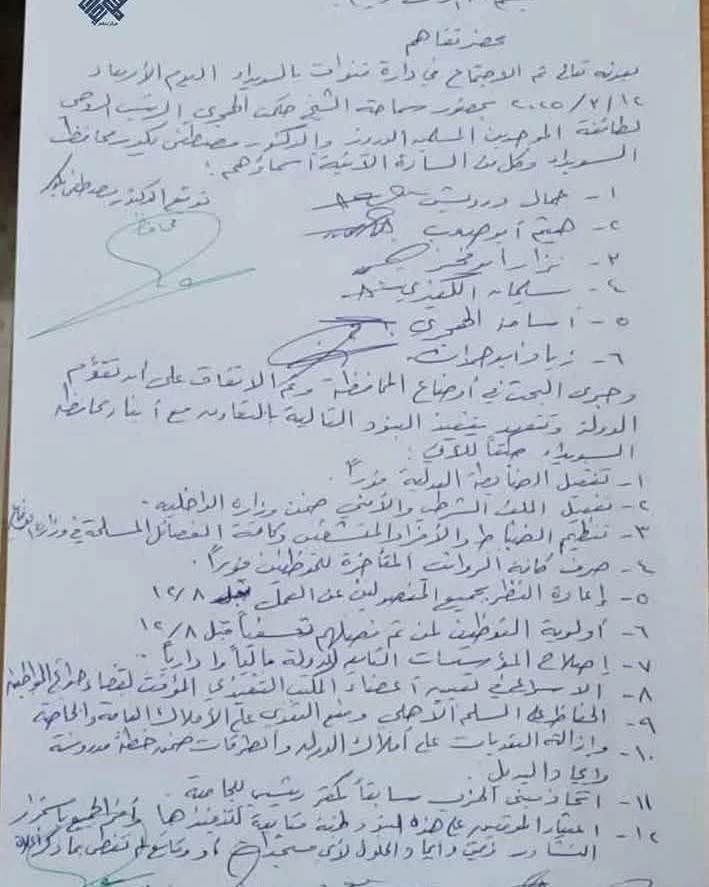 محضر تفاهم
بعونه تعالى تم الاجتماع في دارة قنوات بالسويداء اليوم الأربعاء
١٢/٣/٢٠٢٥ بحضور سماحة الشيخ حكمت الهجري الرئيس الروحي
لطائفة الموحدين المسلمين الدروز والدكتور مصطفى بكور محافظ
السويداء وكل من السادة الآتية أسماؤهم :
توقيع الدكتور مصطفى بكور
محافظ
١- جمال درويش
٢- هيثم أبو صعب
٣- نزار أبو فخر
٤- سليمان الكفيري
٥- أسامة الهجري
٦- زياد أبو حمدان
وجرى البحث في أوضاع المحافظة وتم الاتفاق على أن تقوم
الدولة وتتعهد بتنفيذ البنود التالية بالتعاون مع أبناء محافظة
السويداء
١- تفعيل الضابطة العدلية فوراً.
٢- تفعيل الملف الشرطي والأمني ضمن وزارة الداخلية.
٣- تنظيم الضباط والأفراد المنشقين وكافة الفصائل المسلحة في وزارة الدفاع
٤- صرف كافة الرواتب المتأخرة للموظفين فوراً.
٥- إعادة النظر بجميع المفصولين عن العمل قبل ١٢/٨
٦- أولوية التوظيف لمن تم فصلهم تعسفياً قبل ١٢/٨
٧- إصلاح المؤسسات التابعة للدولة مالياً وإدارياً.
٨- الإسراع في تعيين أعضاء المكتب التنفيذي المؤقت لقضاء حوائج المواطنين
٩- الحفاظ على السلم الأهلي ومنع التعدي على الأملاك العامة والخاصة
١٠- وإزالة التعديات على أملاك الدولة والطرقات ضمن خطة مدروسة
وإيجاد البديل.
١١- اتخاذ مبنى الحزب سابقاً كمقر رئيسي للجامعة.
١٢- اعتبار الموقعين على هذه البنود لجنة متابعة لتنفيذها وأقر الجميع باستمرار
التشاور وإيجاد الحلول لأي مستجدات أو وقائع لم تنص بما ذكر أعلاه